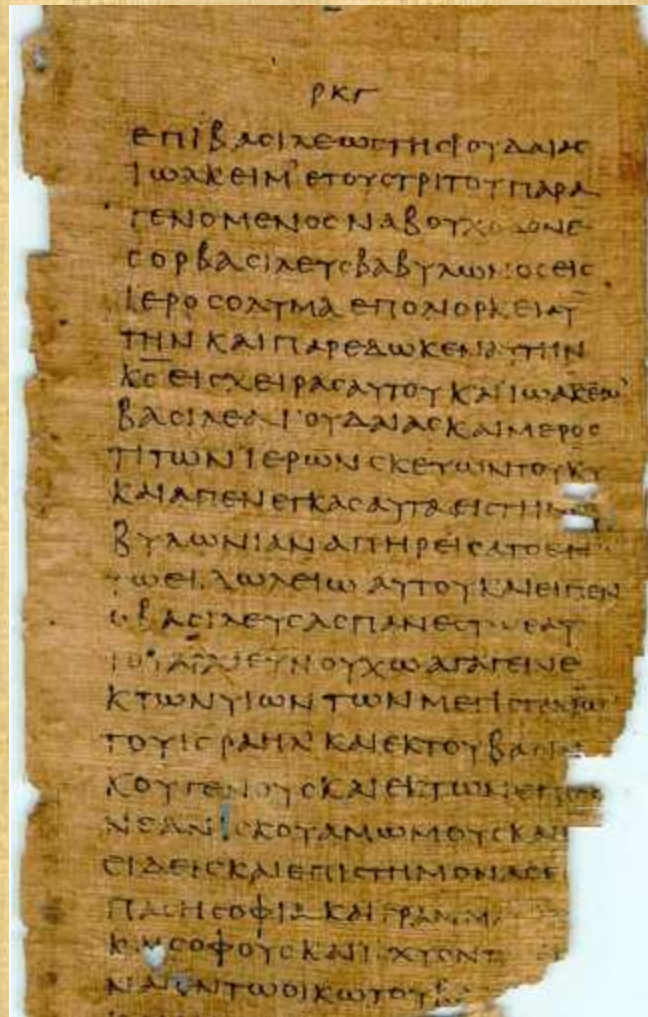 ΡΚΓ
ΕΠΙ ΒΑϹΙΛΕΩϹ ΤΗϹ ΙΟΥΔΑΙΑϹ
ΙΩΑΚΕΙΜ ΕΤΟΥϹ ΤΡΙΤΟΥ ΠΑΡΑ
ΓΕΝΟΜΕΝΟϹ ΝΑΒΟΥΧΟΔΟΝΕ
ϹΟΡ ΒΑϹΙΛΕΥϹ ΒΑΒΥΛΩΝΟϹ ΕΙϹ
ΙΕΡΟϹΟΛΥΜΑ ΕΠΟΛΙΟΡΚΕΙ ΑΥ
ΤΗΝ ΚΑΙ ΠΑΡΕΔΩΚΕΝ ΑΥΤΗΝ
Κ̅Ϲ̅ ΕΙϹ ΧΕΙΡΑϹ ΑΥΤΟΥ ΚΑΙ ΙΩΑΚΕΙΜ
ΒΑϹΙΛΕΑ ΙΟΥΔΑΙΑϹ ΚΑΙ ΜΕΡΟϹ
ΤΙ ΤΩΝ ΙΕΡΩΝ ϹΚΕΥΩΝ ΤΟΥ Κ̅Υ̅
ΚΑΙ ΑΠΕΝΕΓΚΑϹ ΑΥΤΑ ΕΙϹ ΤΗΝ
ΒΥΛΩΝΙΑΝ ΑΠΗΡΕΙϹΑΤΟ ΕΝ
ΤΩ ΕΙΔΩΛΕΙΩ ΑΥΤΟΥ ΚΑΙ ΕΙΠΕΝ
Ο ΒΑϹΙΛΕΥϹ ΑϹΠΑΝΕϹ
ΕΥΝΟΥΧΩ ΑΓΑΓΕΙΝ Ε
Κ ΤΩΝ ΥΙΩΝ ΤΩΝ ΜΕΓΙϹΤΑΝΩΝ
ΤΟΥ ΙϹΡΑΗΛ ΚΑΙ ΕΚ ΤΟΥ ΒΑϹΙΛΙ
ΚΟΥ ΓΕΝΟΥϹ ΚΑΙ ΕΚ ΤΩΝ
ΝΕΑΝΙϹΚΟΥϹ ΑΜΩΜΟΥϹ ΚΑΙ
ΕΙΔΕΙϹ ΚΑΙ ΕΠΙϹΤΗΜΟΝΑϹ Ε
ΠΑϹΗ ϹΟΦΙΑ ΚΑΙ ΓΡΑΜΜΑ
ΚΑΙ ϹΟΦΟΥϹ ΚΑΙ ΙϹΧΥΟΝΤ
ΝΑΙ ΕΝ ΤΩ ΟΙΚΩ ΤΟΥ ΒΑ